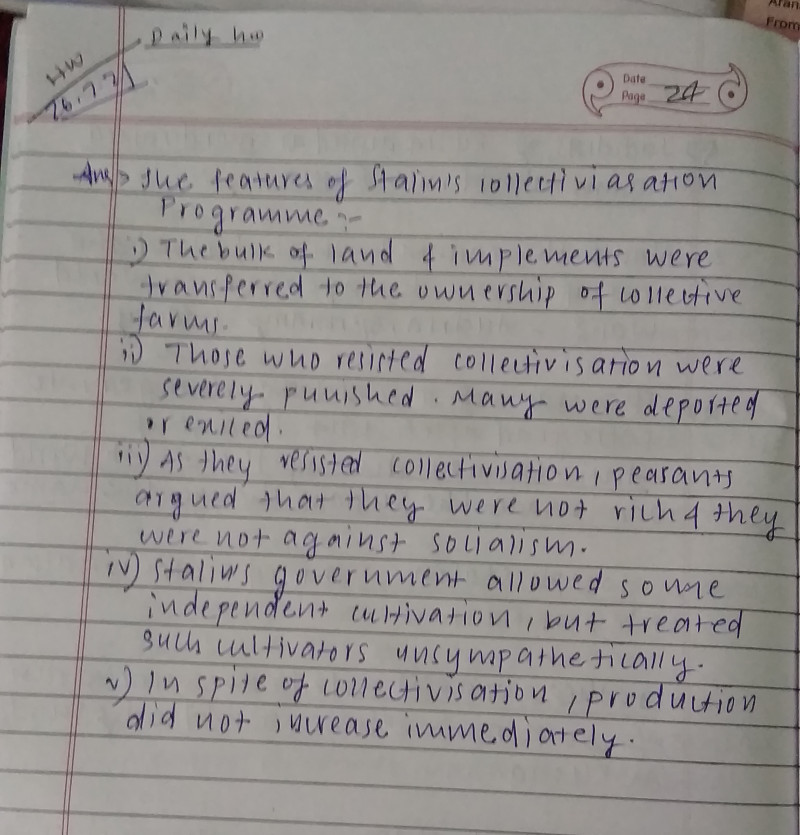 Aran
From
Daily hw
HW
26.7.21
Date
Page 24
Ans> The features of Stalin's collectiviasation
Programme :-
i) The bulk of land & implements were
transferred to the ownership of collective
farms.
ii) Those who resisted collectivisation were
severely punished. Many were deported
or exiled.
iii) As they resisted collectivisation, peasants
argued that they were not rich & they
were not against socialism.
iv) Stalin's government allowed some
independent cultivation, but treated
such cultivators unsympathetically.
v) In spite of collectivisation, production
did not increase immediately.